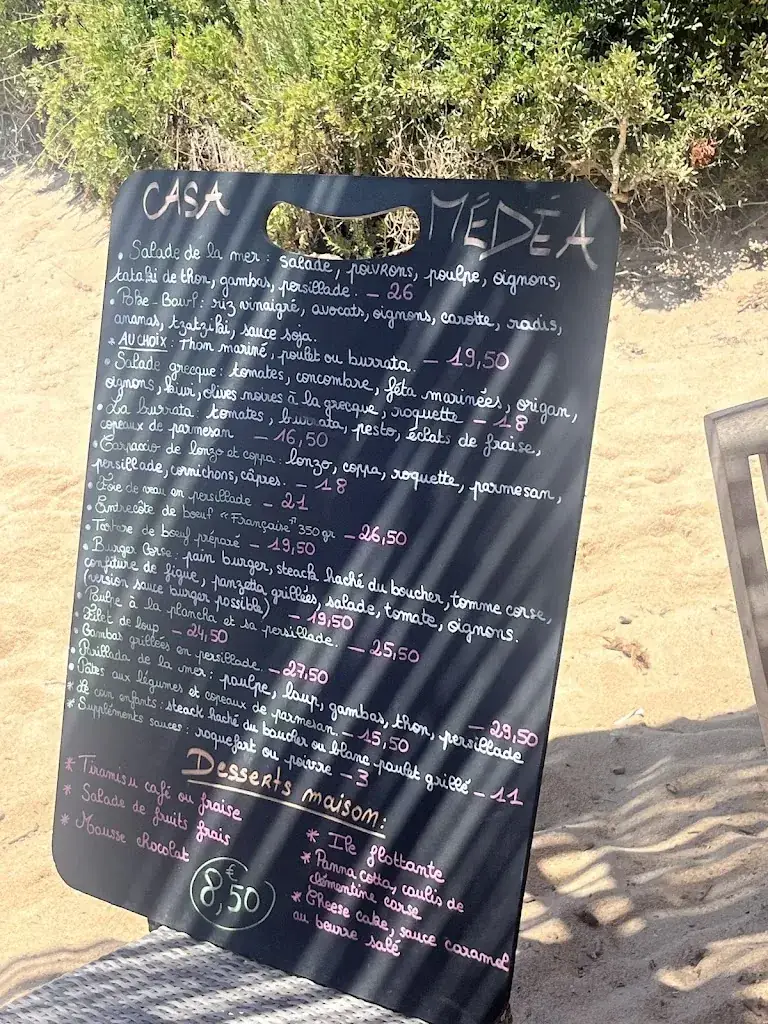 CASA MÉDÉA
• Salade de la mer : salade, poivrons, poulpe, oignons,
tataki de thon, gambas, persillade. – 26
• Poke-Bowl : riz vinaigré, avocats, oignons, carotte, radis,
ananas, tzatziki, sauce soja.
* AU CHOIX : Thon mariné, poulet ou burrata. – 19,50
• Salade grecque : tomates, concombre, féta marinées, origan,
oignons, kiwi, olives noires à la grecque, roquette – 18
• La burrata : tomates, burrata, pesto, éclats de fraise,
copeaux de parmesan – 16,50
• Carpaccio de lonzo et coppa : lonzo, coppa, roquette, parmesan,
persillade, cornichons, câpres. – 18
• Foie de veau en persillade – 21
• Entrecôte de boeuf "Française" 350gr – 26,50
• Tartare de boeuf préparé – 19,50
• Burger Corse : pain burger, steack haché du boucher, tomme corse,
confiture de figue, panzetta grillées, salade, tomate, oignons.
(version sauce burger possible) – 19,50
• Poulpe à la plancha et sa persillade. – 25,50
• Filet de loup – 24,50
• Gambas grillées en persillade – 27,50
• Parillada de la mer : poulpe, loup, gambas, thon, persillade – 29,50
• Pâtes aux légumes et copeaux de parmesan – 15,50
* Le coin enfants : steack haché du boucher ou blanc poulet grillé – 11
* Suppléments sauces : roquefort ou poivre – 3
Desserts maison :
* Tiramisu café ou fraise
* Salade de fruits frais
* Mousse chocolat
€
8,50
* Ile flottante
* Panna cotta, coulis de
clémentine corse
* Cheese cake, sauce caramel
au beurre salé